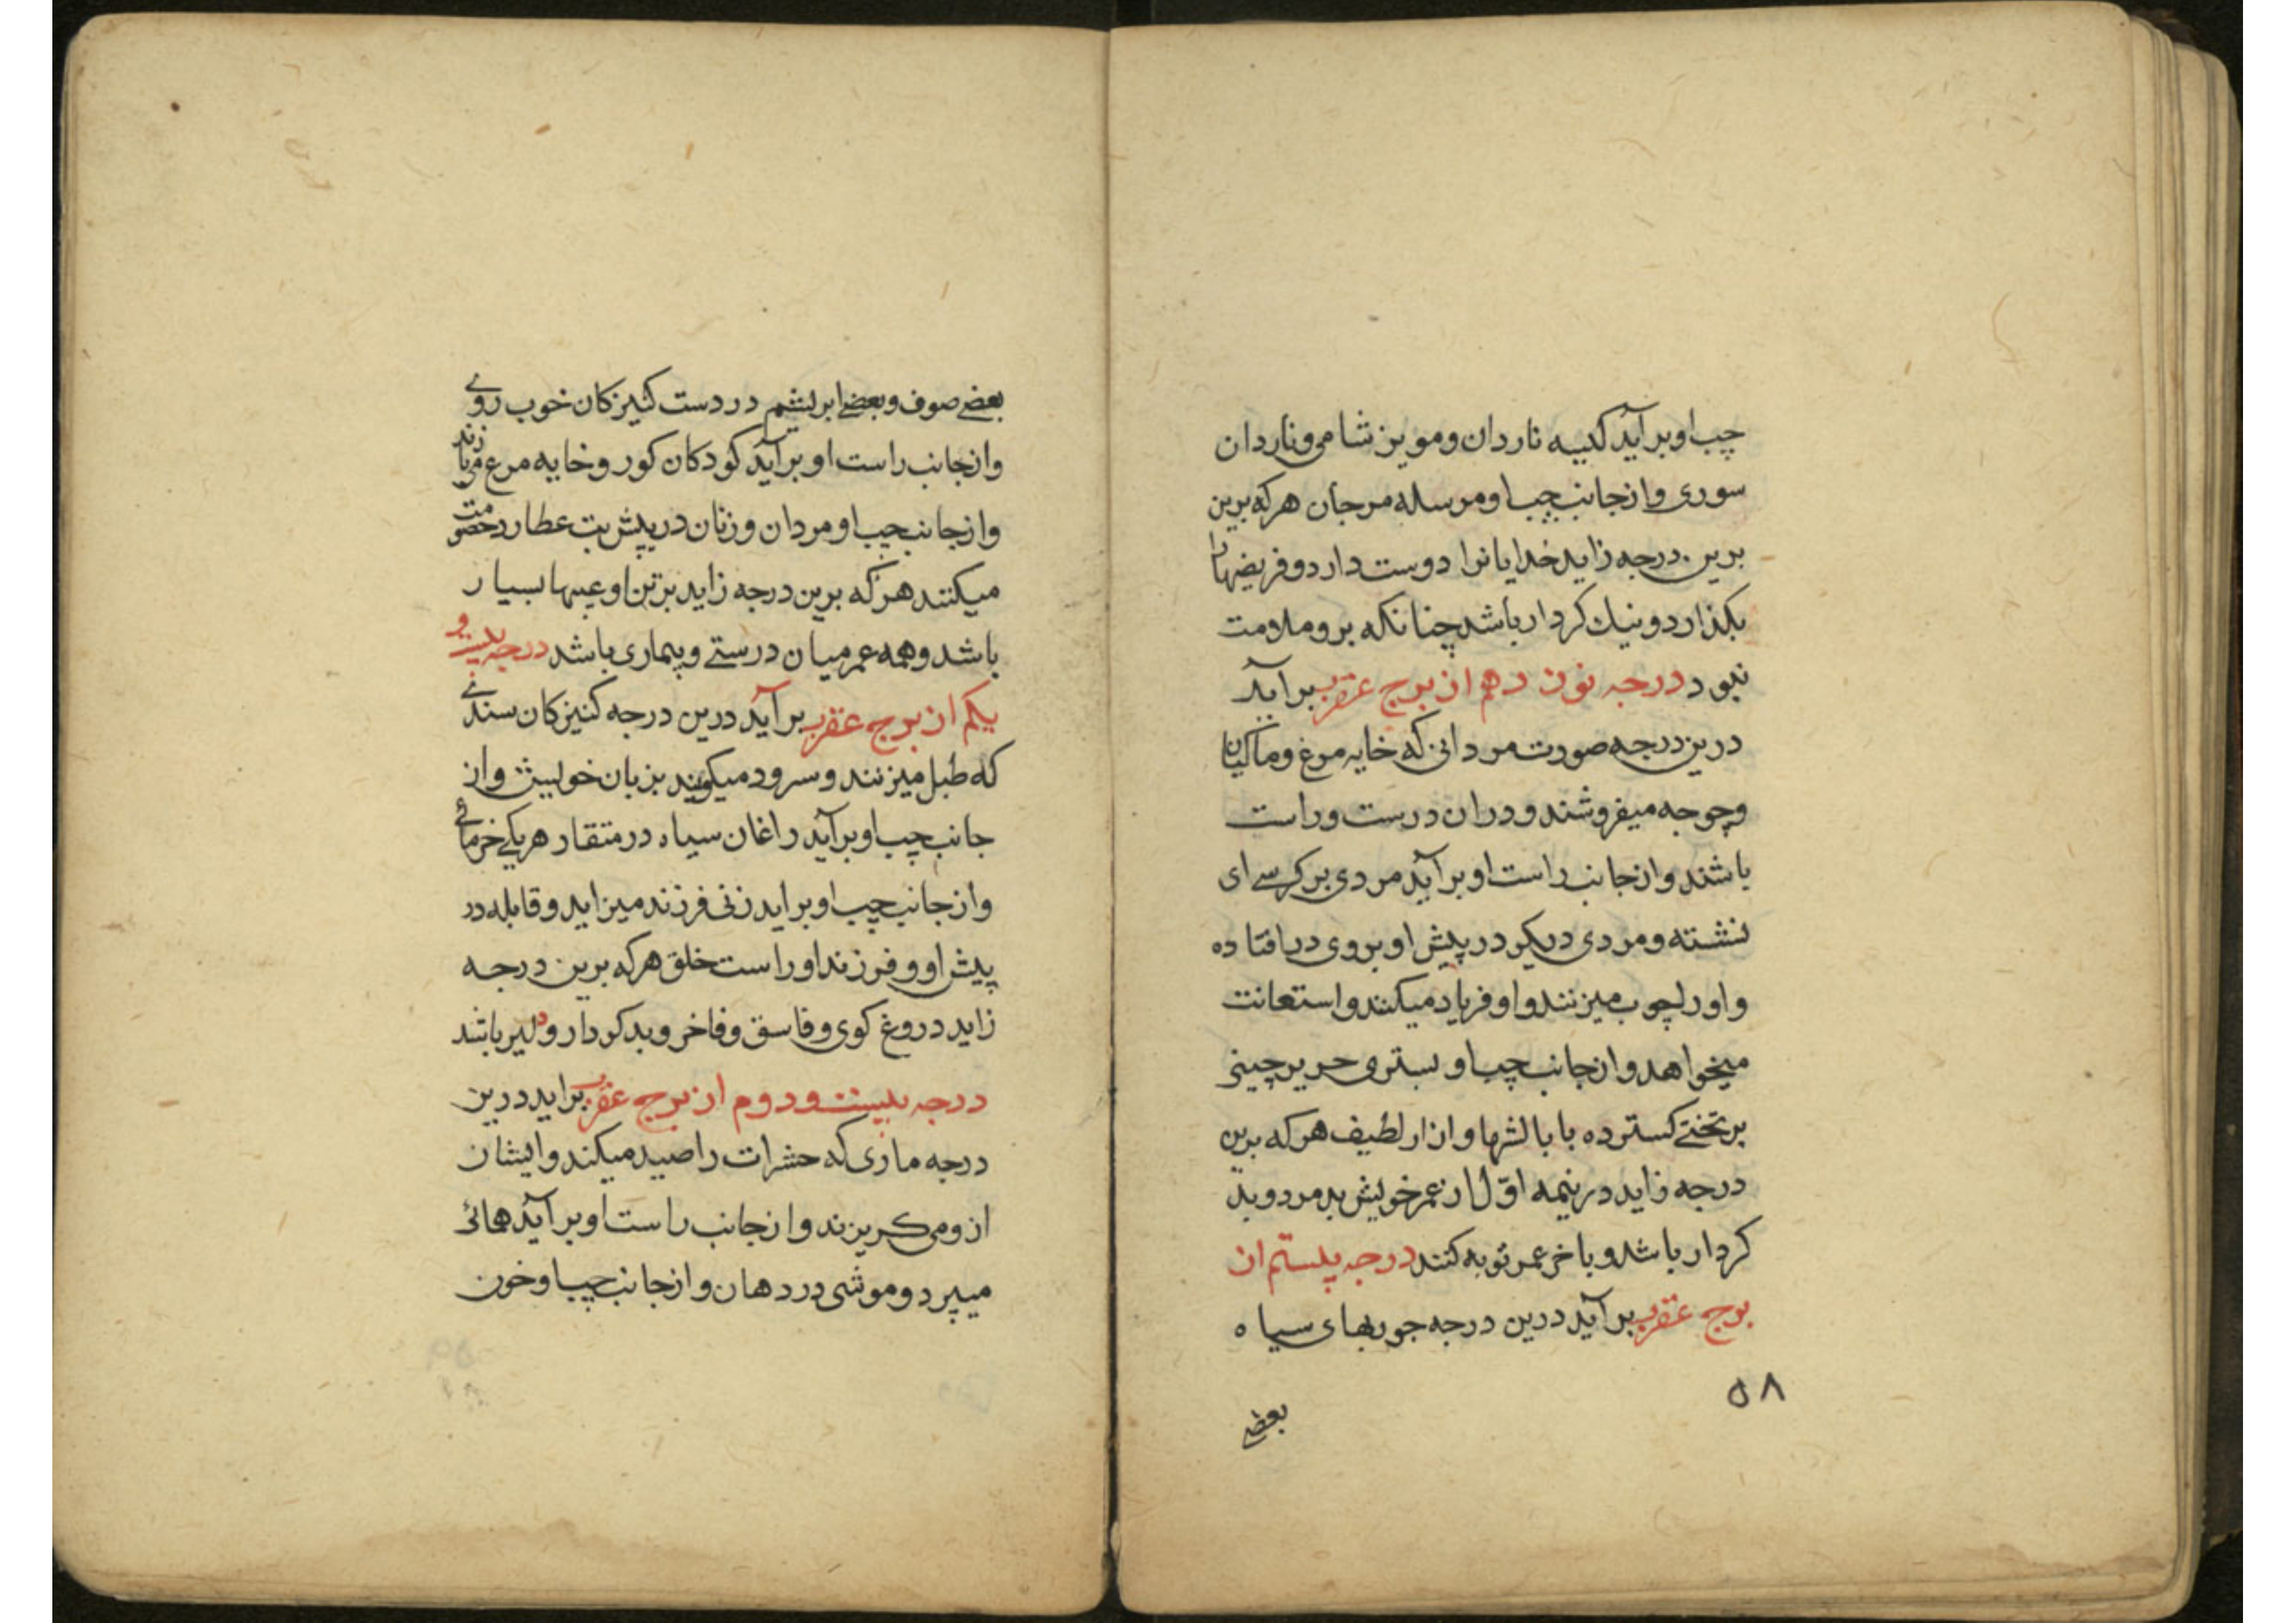 چب او بر آید کیسه ناردان و مویز شامی و ناردان
سوری و از جانب چپ او مرسله مرجان هرکه برین
برین درجه زاید خدایانرا دوست دارد و فریضهارا
بکذارد و نیك کردار باشد چنانکه برو ملامت
نبود درجه نوزدهم از برج عقرب بر آید
درین درجه صورت مردانی که خایه مرغ و ماکیان
و چوجه میفروشند و دران درست و راست
باشند و از جانب راست او بر آید مردی بر کرسی ای
نشسته و مردی دیکر در پیش او بروی در افتاده
و اورا بچوب میزنند و او فریاد میکند و استعانت
میخواهد و از جانب چپ او بستری حریر چینی
بر تختی کسترده با بالشها و ازار لطیف هرکه برین
درجه زاید در نیمه اوّل از عمر خویش بد مرد و بد
کردار باشد و باخر عمر توبه کنند درجه بیستم از
برج عقرب بر آید درین درجه جوربهای سیاه
۵۸
بعضی
بعضی صوف و بعضی ابریشم در دست کنیزکان خوب روی
و از جانب راست او بر آید کودکان کور و خایه مرغ می بازند
و از جانب چپ او مردان و زنان در پیش بت عطارد خصومت
میکنند هرکه برین درجه زاید بر تن او عیبها بسیار
باشد و همه عمر میان درستی و بیماری باشد درجه بیست و
یکم از برج عقرب بر آید درین درجه کنیزکان سندی
که طبل میزنند و سرود میکویند بزبان خویش و از
جانب چپ او بر آید زاغان سیاه در منقار هر یکی خرمائی
و از جانب چپ او بر اید زنی فرزند میزاید و قابله در
پیش او و فرزند او راست خلق هرکه برین درجه
زاید دروغ کوی و فاسق و فاخر و بد کردار و دلیر باشد
درجه بیست و دوم از برج عقرب بر اید درین
درجه ماری که حشرات را صید میکند و ایشان
ازو می کریزند و از جانب راست او بر آید همائی
میپرد و موشی در دهان و از جانب چپ او خون